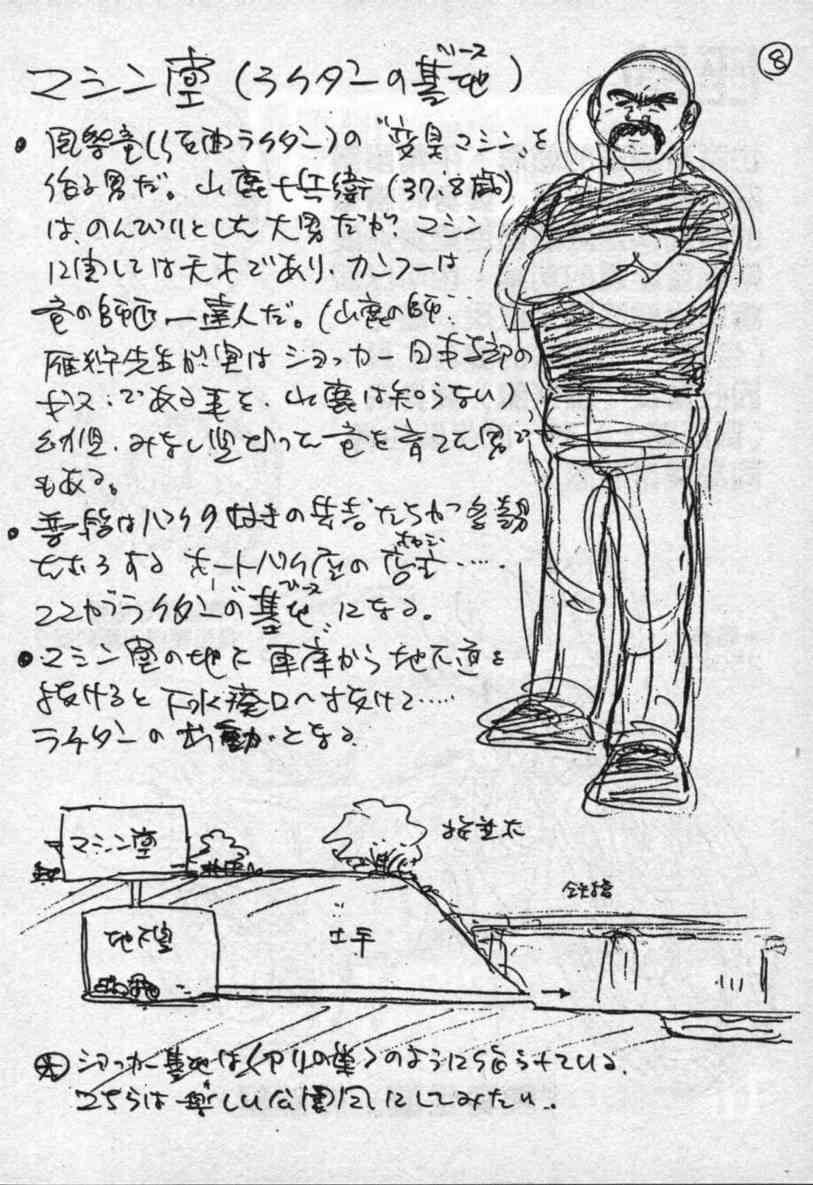 ⑧
マシン堂（ライダーの基地）
ベース
• 風祭竜（仮面ライダー）の〝変身マシン〟を
作る男だ。山鹿十兵衛（37.8歳）
は、のんびりとした大男だが、マシン
に関しては天才であり、カンフーは
竜の師匠 ― 達人だ。（山鹿の師
先生が実は ショッカー日本支部の
ボス、である事を、山鹿は知らない）
幼児、みなし児だった竜を育てた男で
もある。
• 普段はバイク好きの若者たちが
たむろする オートバイ屋の店主……
ココがライダーの〝基地〟になる。
ベース
• マシン堂の地下車庫から地下道を
抜けると下水廃口へ抜けて……
ライダーの出動、となる。
マシン堂
地下室
土手
鉄橋
ショッカー基地は〈アリの巣〉のように
こちらは楽しい公園風にしてみたい。